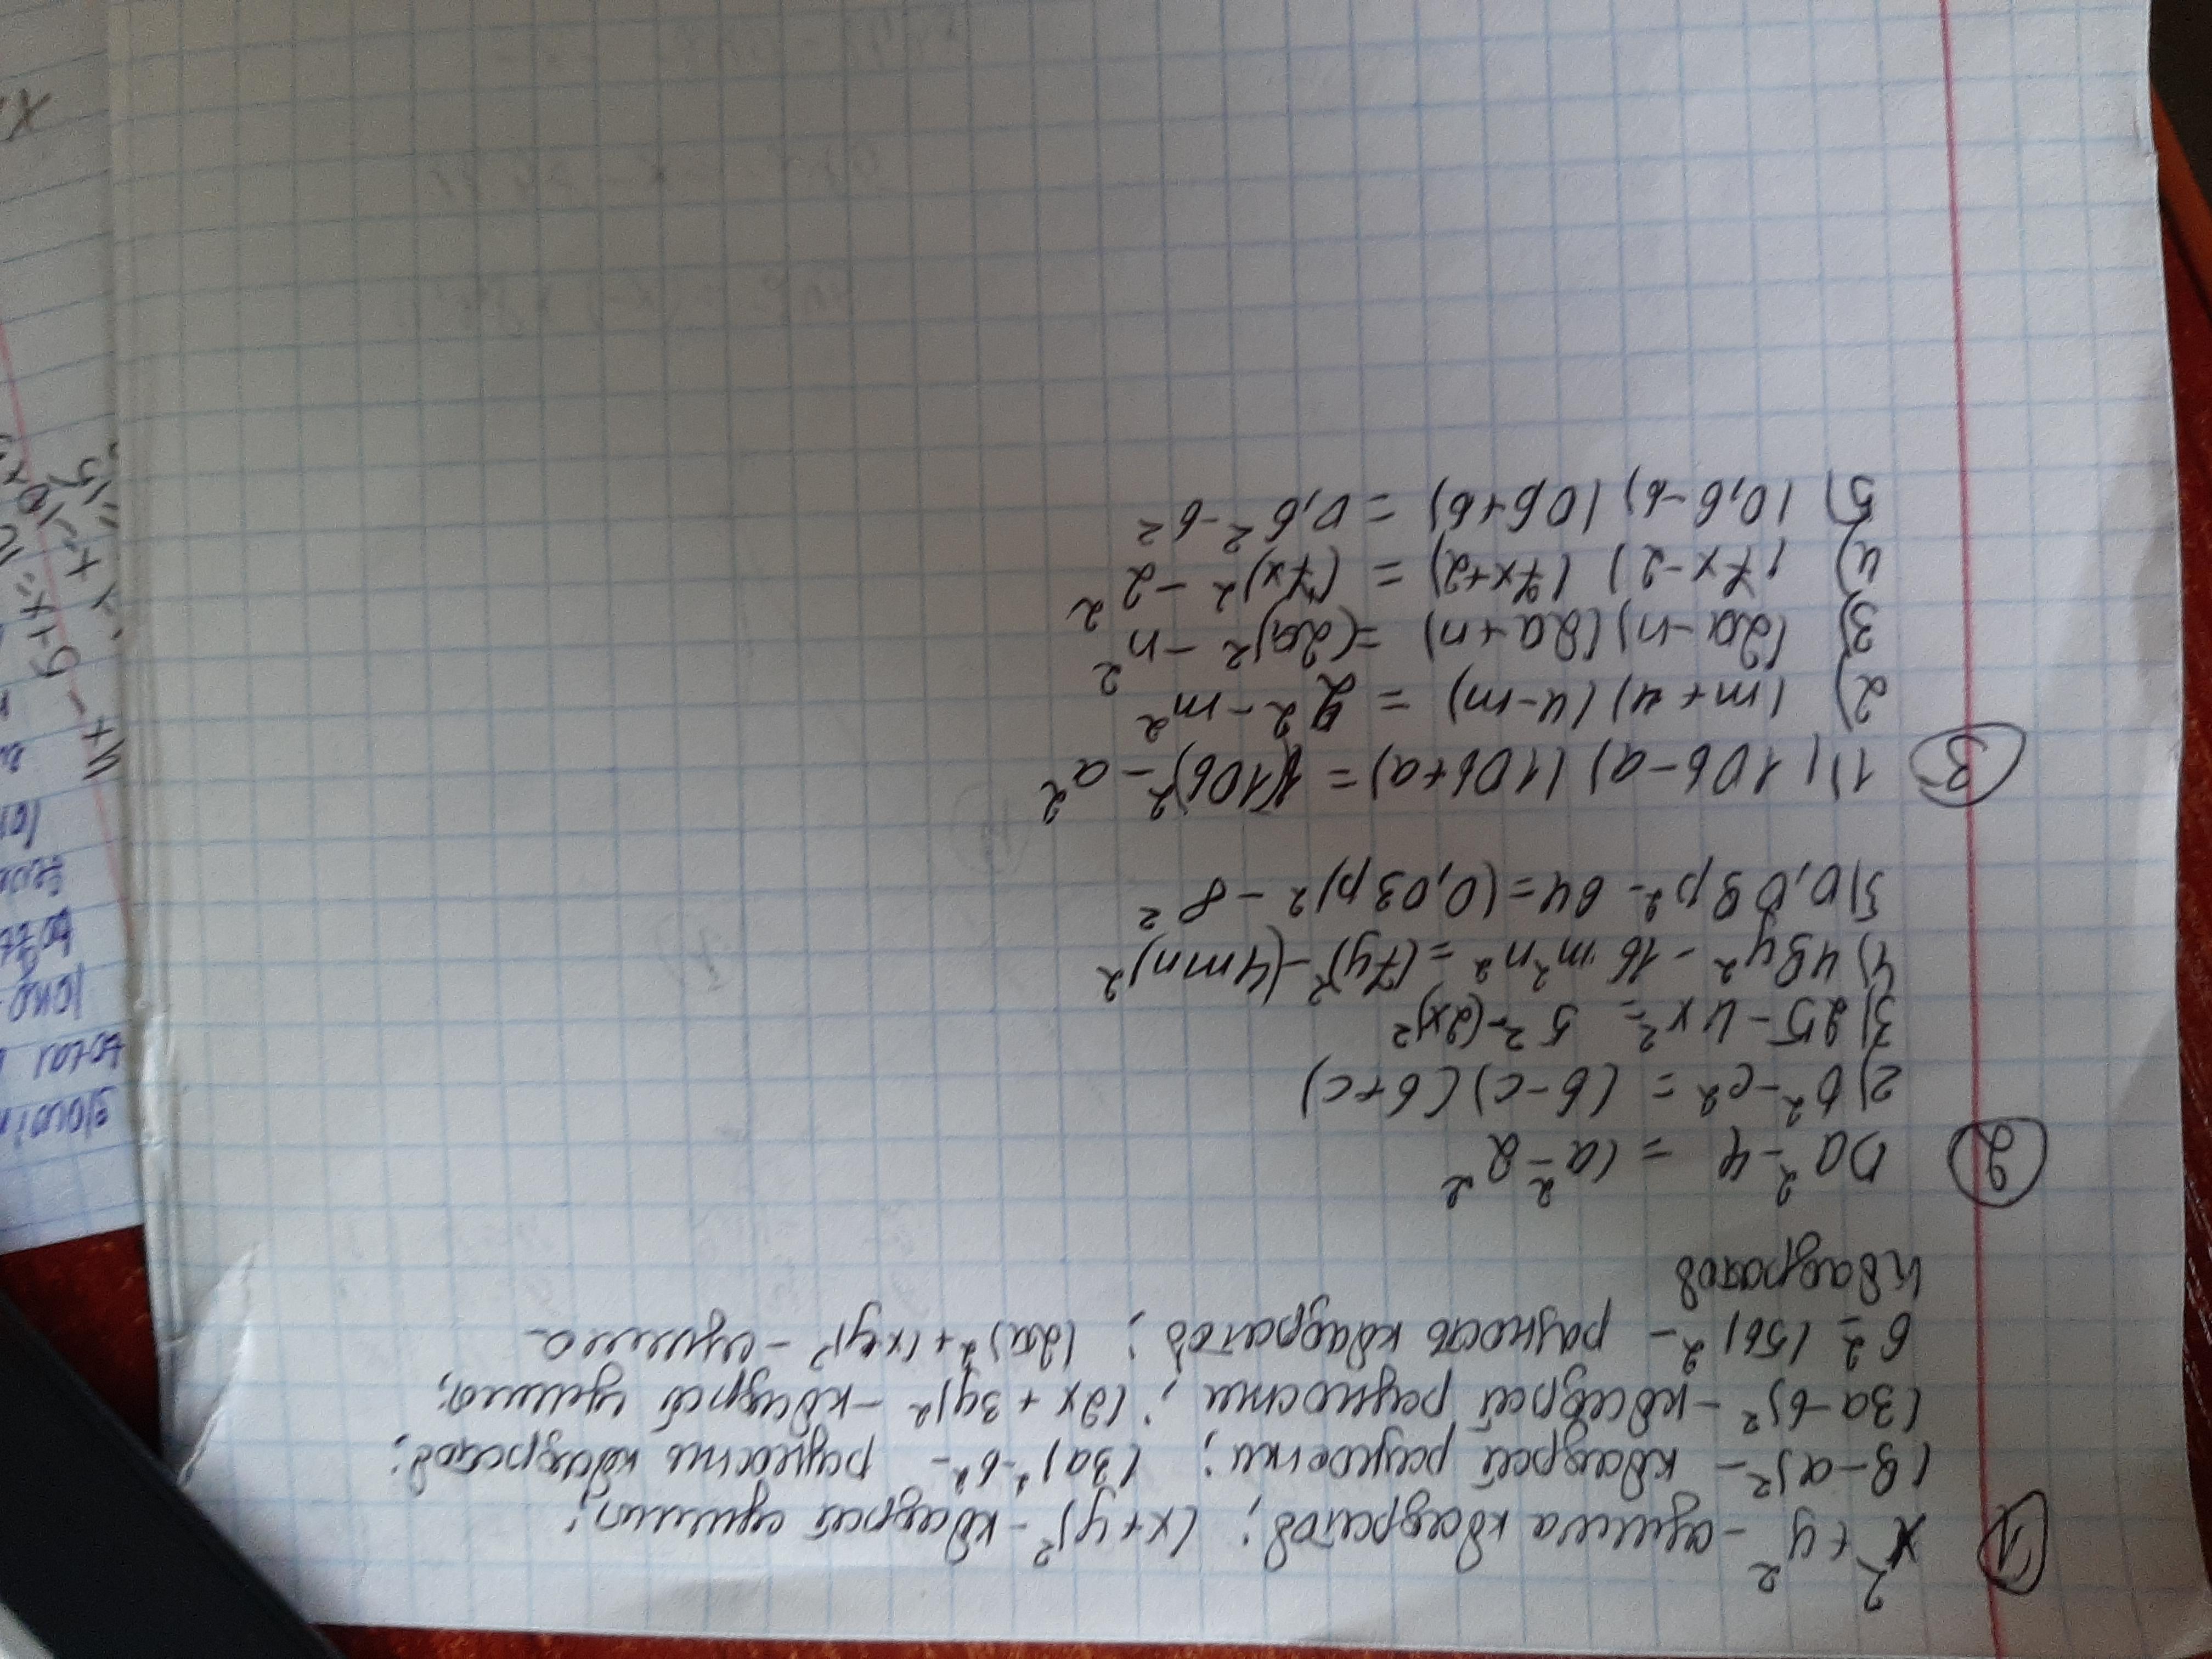 ① x² + y² - сумма квадратов; (x+y)² - квадрат суммы;
(9-a)² - квадрат разности; (3a)²-b² - разность квадратов;
(3a-b)² - квадрат разности; (2x+3y)² - квадрат суммы;
6²-(5b)² - разность квадратов; (2a)²+(xy)² - сумма
квадратов
② 1) a²-4 = (a²-2²
2) b²-c² = (b-c)(b+c)
3) 25-4x² = 5²-(2x)²
4) 49y²-16m²n² = (7y)²-(4mn)²
5) 0,09p²-64 = (0,03p)²-8²
③ 1) (10b-a)(10b+a) = (10b)²-a²
2) (m+4)(4-m) = 2²-m²
3) (2a-n)(2a+n) = (2a)²-n²
4) (7x-2)(7x+2) = (7x)²-2²
5) (0,6-b)(0,6+b) = 0,6²-b²